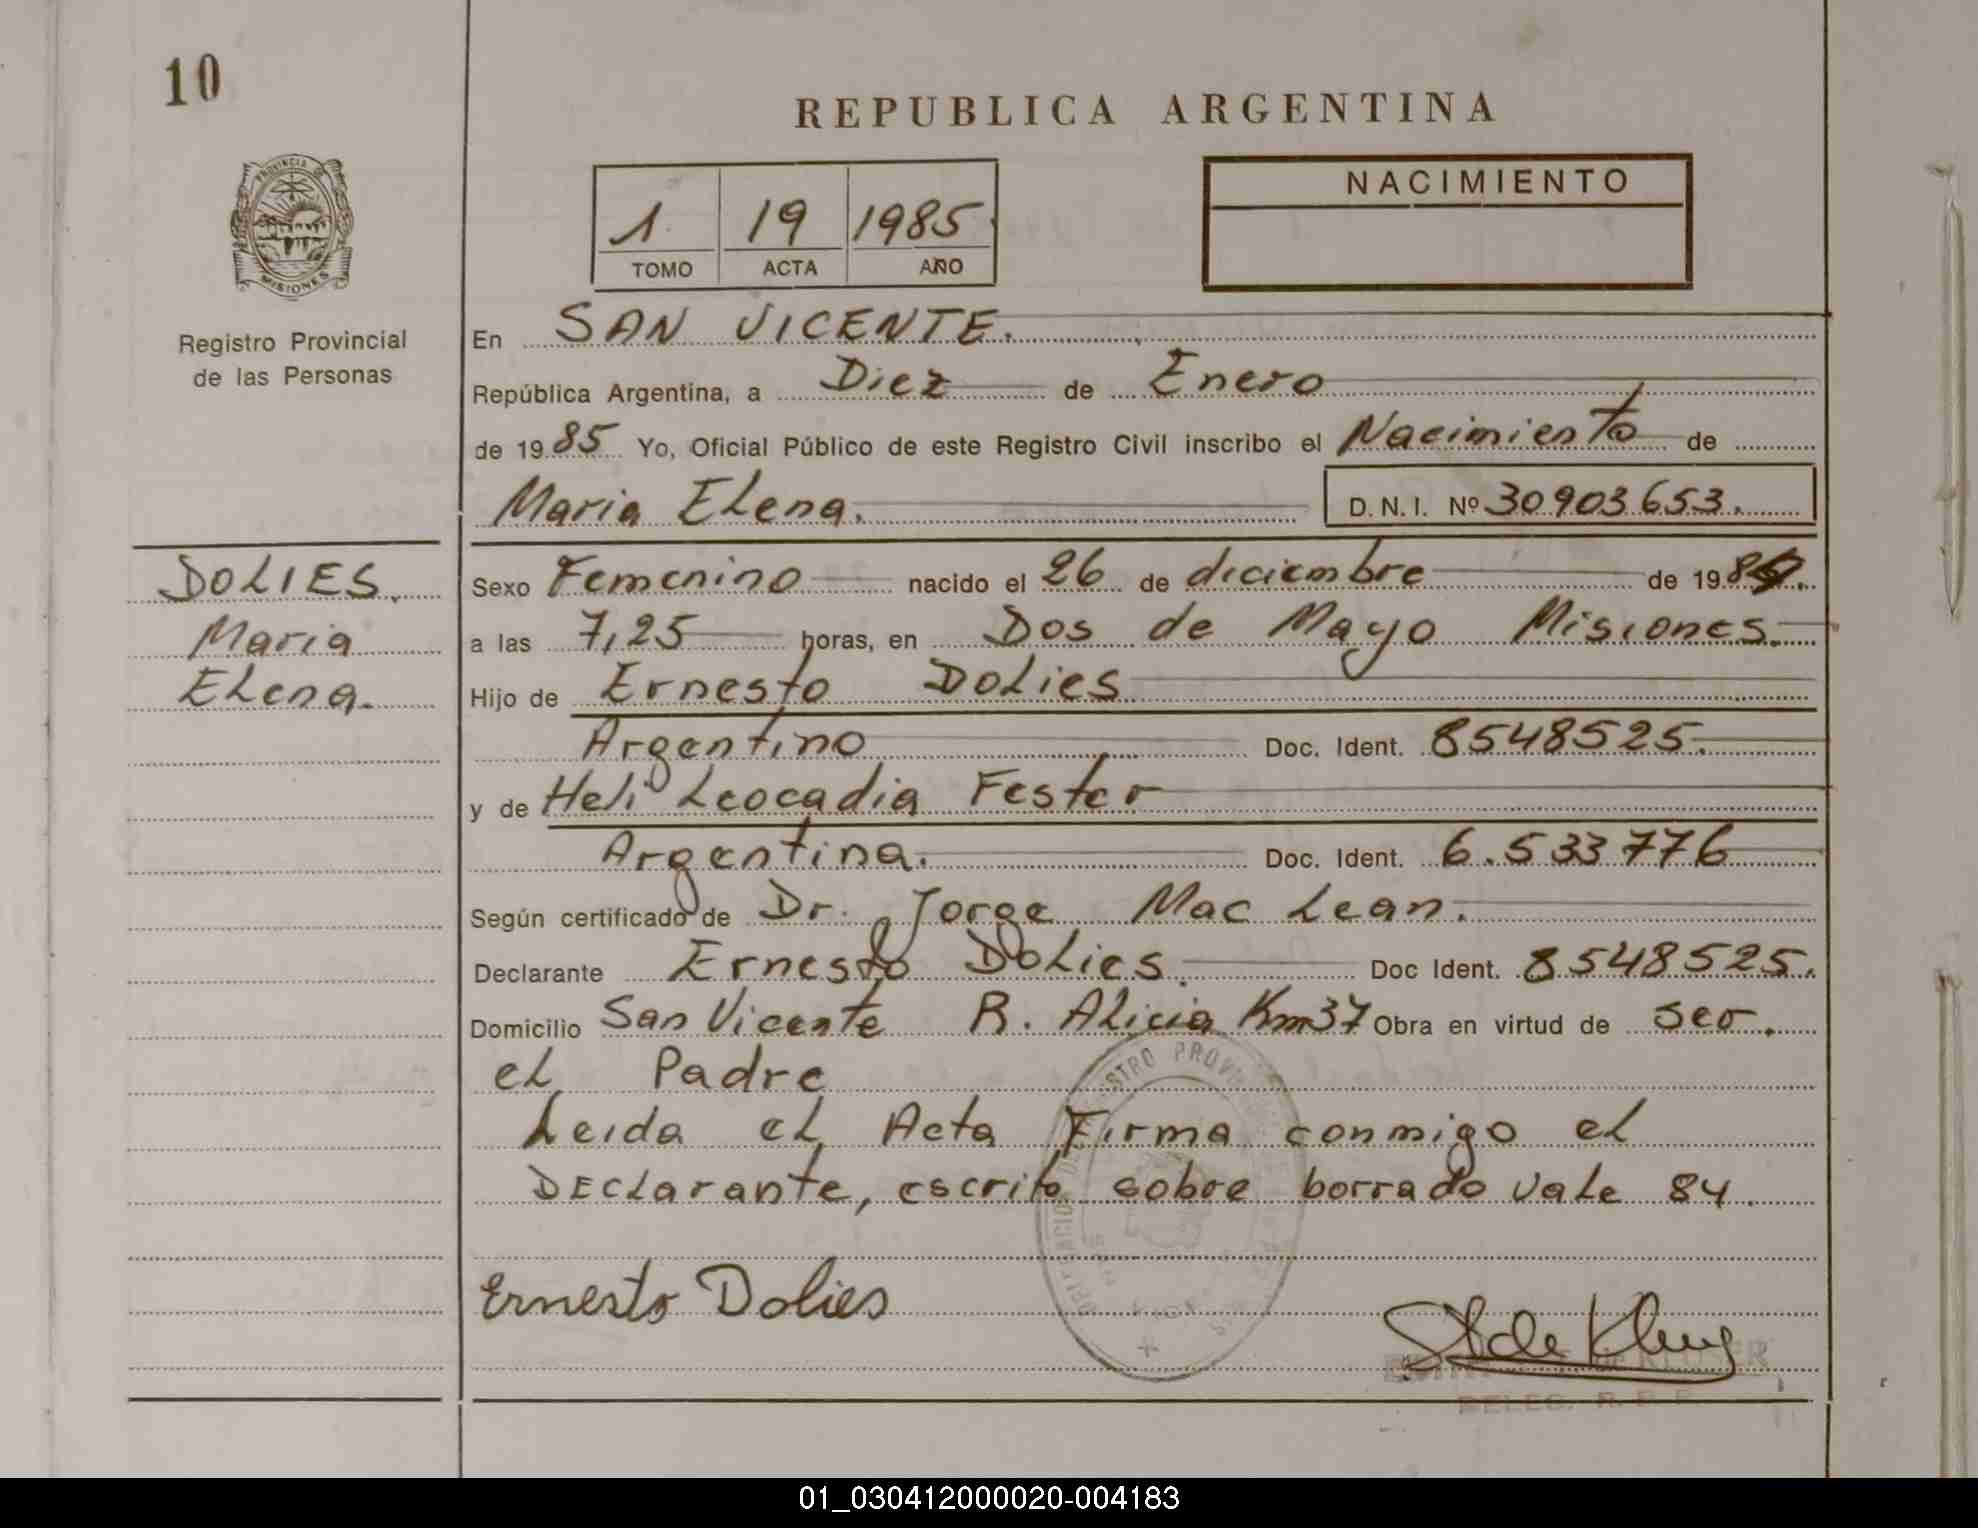 10
REPUBLICA ARGENTINA
PROVINCIA DE
MISIONES
Registro Provincial
de las Personas
1 19 1985
TOMO ACTA AÑO
NACIMIENTO
En SAN VICENTE.
República Argentina, a Diez de Enero
de 1985 Yo, Oficial Público de este Registro Civil inscribo el Nacimiento de
Maria Elena. D.N.I. Nº 30903653.
DOLIES.
Maria
Elena.
Sexo Femenino nacido el 26 de diciembre de 1984.
a las 7,25 horas, en Dos de Mayo Misiones.
Hijo de Ernesto Dolies
Argentino Doc. Ident. 8548525.
y de Heli Leocadia Fester
Argentina. Doc. Ident. 6.533776
Según certificado de Dr. Jorge Mac Lean.
Declarante Ernesto Dolies. Doc Ident. 8548525.
Domicilio San Vicente R. Alicia Km37 Obra en virtud de ser.
el Padre
Leida el Acta Firma conmigo el
DEClarante, escrito sobre borrado vale 84.
Ernesto Dolies
de KLUSER
DELEG. R. P. P.
01_030412000020-004183